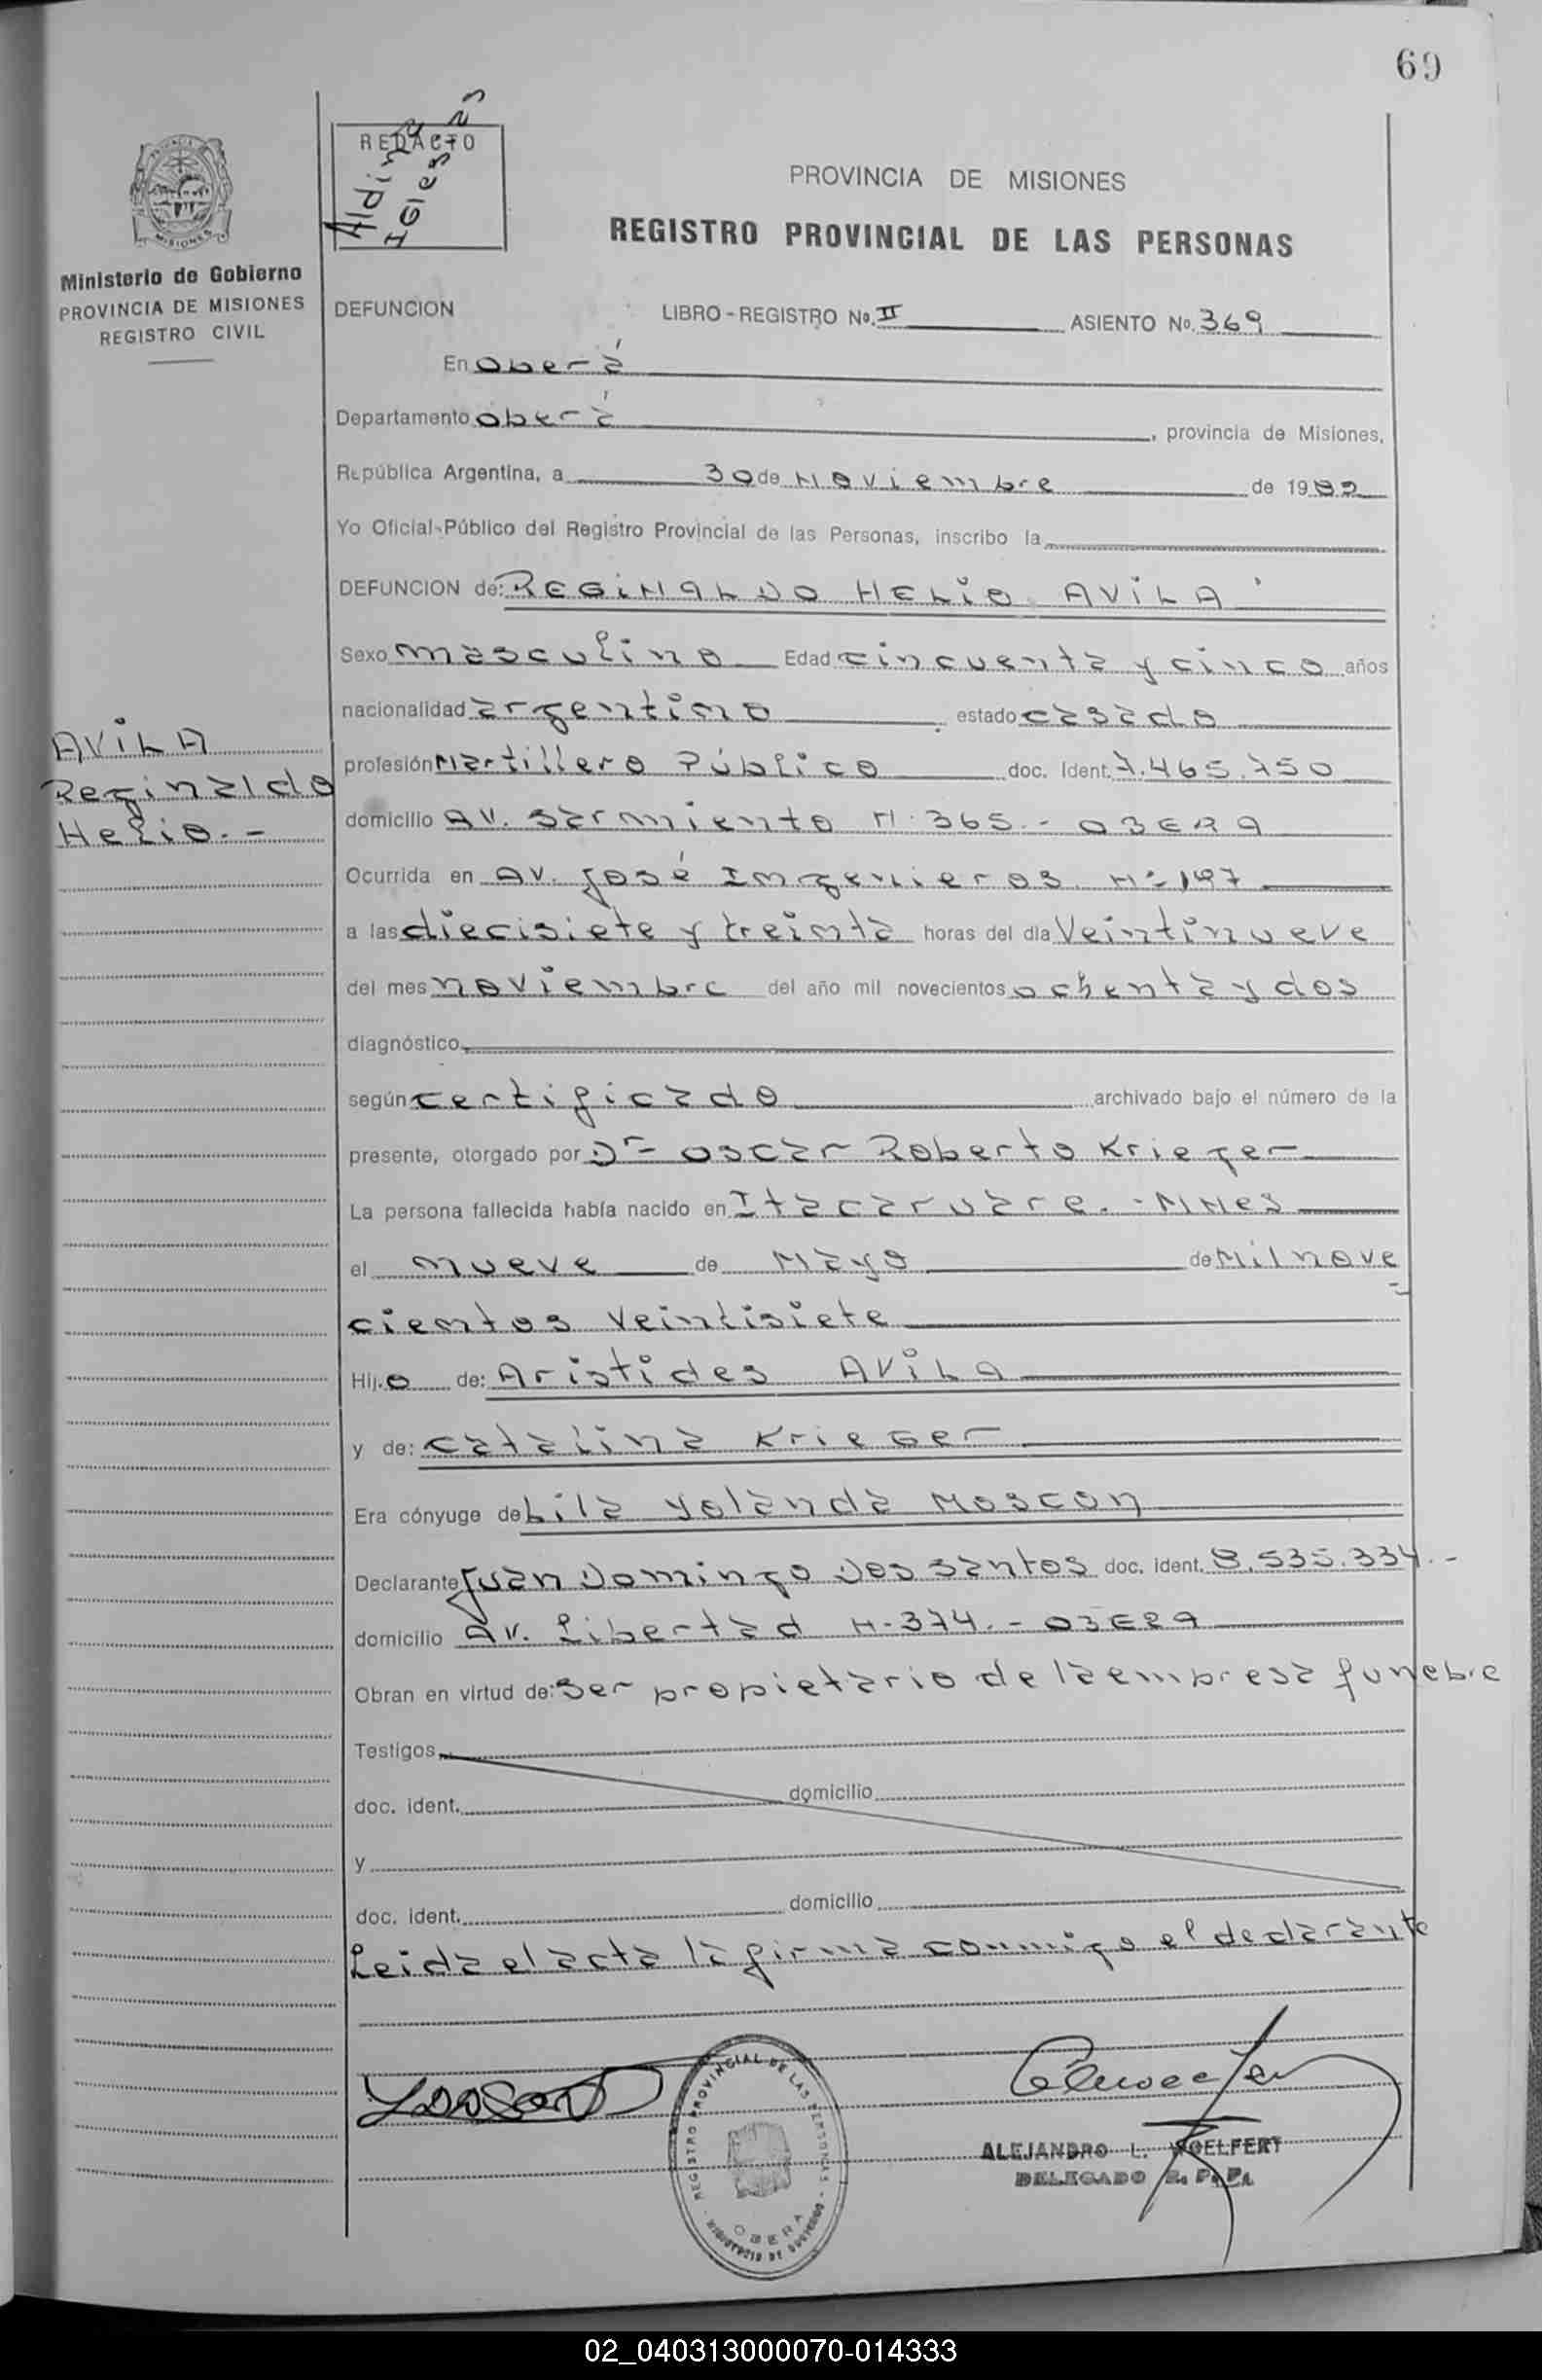 69
REDACTO
Aldina
Iglesias
PROVINCIA DE MISIONES
REGISTRO PROVINCIAL DE LAS PERSONAS
MISIONES
Ministerio de Gobierno
PROVINCIA DE MISIONES
REGISTRO CIVIL
DEFUNCION LIBRO-REGISTRO No. II ASIENTO No. 369
En Oberá
Departamento Oberá, provincia de Misiones,
República Argentina, a 30 de Noviembre de 1982
Yo Oficial-Público del Registro Provincial de las Personas, inscribo la
DEFUNCION de: REGINALDO HELIO AVILA
Sexo masculino Edad cincuenta y cinco años
nacionalidad argentino estado casado
AVILA
Reginaldo
Helio.-
profesión Martillero Público doc. Ident. 7.465.750
domicilio AV. Sarmiento N. 365.- OBERA
Ocurrida en AV. José Ingenieros Nº 197
a las diecisiete y treinta horas del día Veintinueve
del mes noviembre del año mil novecientos ochenta y dos
diagnóstico
según certificado archivado bajo el número de la
presente, otorgado por Dr Oscar Roberto Krieger
La persona fallecida había nacido en Itacaruare.-MNes
el nueve de Mayo de Mil nove
cientos veintisiete
Hijo de: Aristides AVILA
y de: Catalina KrieGer
Era cónyuge de Lila Yolanda Moscon
Declarante Juan Domingo Dos Santos doc. ident. 8.535.334.-
domicilio AV. Libertad N-374.- OBERA
Obran en virtud de: Ser propietario de la empresa funebre
Testigos
doc. ident. domicilio
y
doc. ident. domicilio
Leida el acta la firma conmigo el declarante
REGISTRO PROVINCIAL DE LAS PERSONAS
OBERA
MINISTERIO DE GOBIERNO
ALEJANDRO L. WOELFERT
DELEGADO R. P. P.
02_040313000070-014333